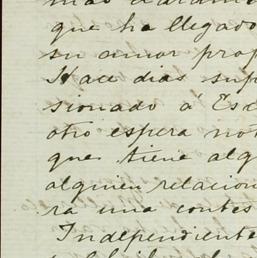 que ha llegado
su amor prop
Hace dias sup
sionado á Esc
otro espera not
que tiene alg
alguien relacion
ra una contes
Independiente